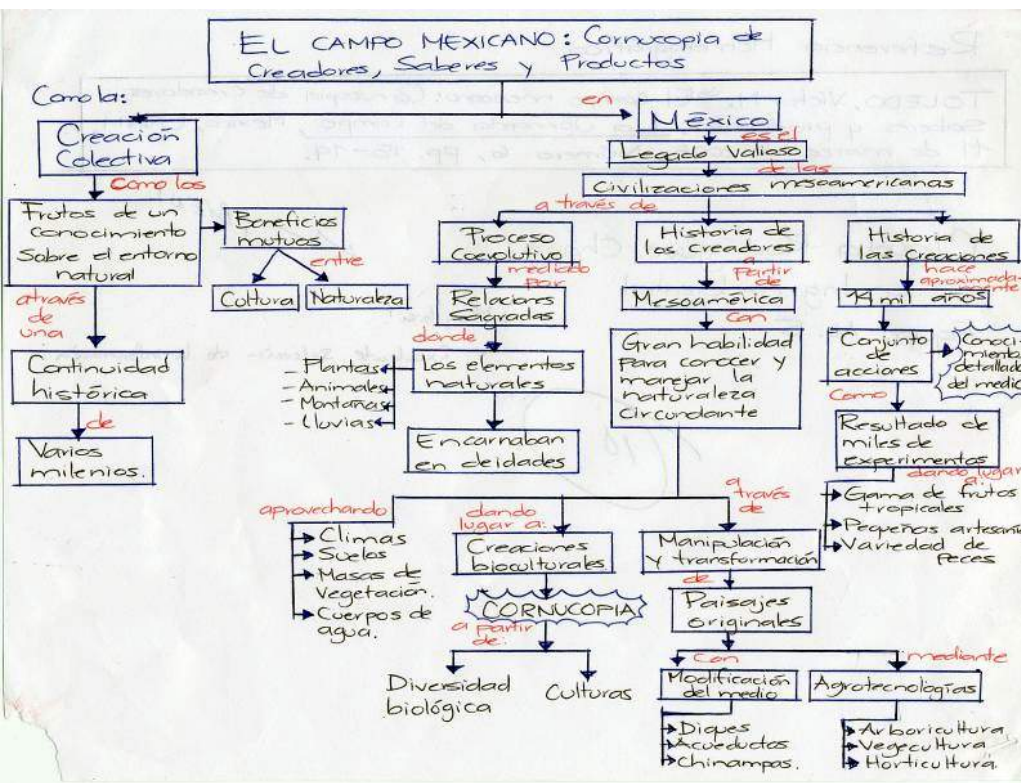 EL CAMPO MEXICANO: Cornucopia de
Creadores, Saberes y Productos
Como la:
en
Creación
Colectiva
México
es el
Legado Valioso
de las
Civilizaciones mesoamericanas
como los
a través de
Frutos de un
conocimiento
Sobre el entorno
natural
Beneficios
mutuos
entre
Cultura
Naturaleza
através
de
una
Continuidad
histórica
de
Varios
milenios.
Proceso
Coevolutivo
mediado
por
Relaciones
Sagradas
donde
Los elementos
naturales
- Plantas
- Animales
- Montañas
- Lluvias
Encarnaban
en deidades
Historia de
los creadores
a
partir
de
Mesoamérica
con
Gran habilidad
para conocer y
manejar la
naturaleza
circundante
Historia de
las creaciones
hace
aproximada-
mente
14 mil años
Conjunto
de
acciones
Conoci-
miento
detallado
del medio
como
Resultado de
miles de
experimentos
dando lugar
a:
Gama de frutos
tropicales
Pequeños artesani
Variedad de
peces
aprovechando
Climas
Suelos
Masas de
Vegetación.
Cuerpos de
agua.
dando
lugar a:
Creaciones
bioculturales
CORNUCOPIA
a partir
de:
Diversidad
biológica
Culturas
a
través
de
Manipulación
y transformación
de
Paisajes
originales
con
Modificación
del medio
Diques
Acueductos
Chinampas.
mediante
Agrotecnologías
Arboricultura
Vegecultura
Horticultura.